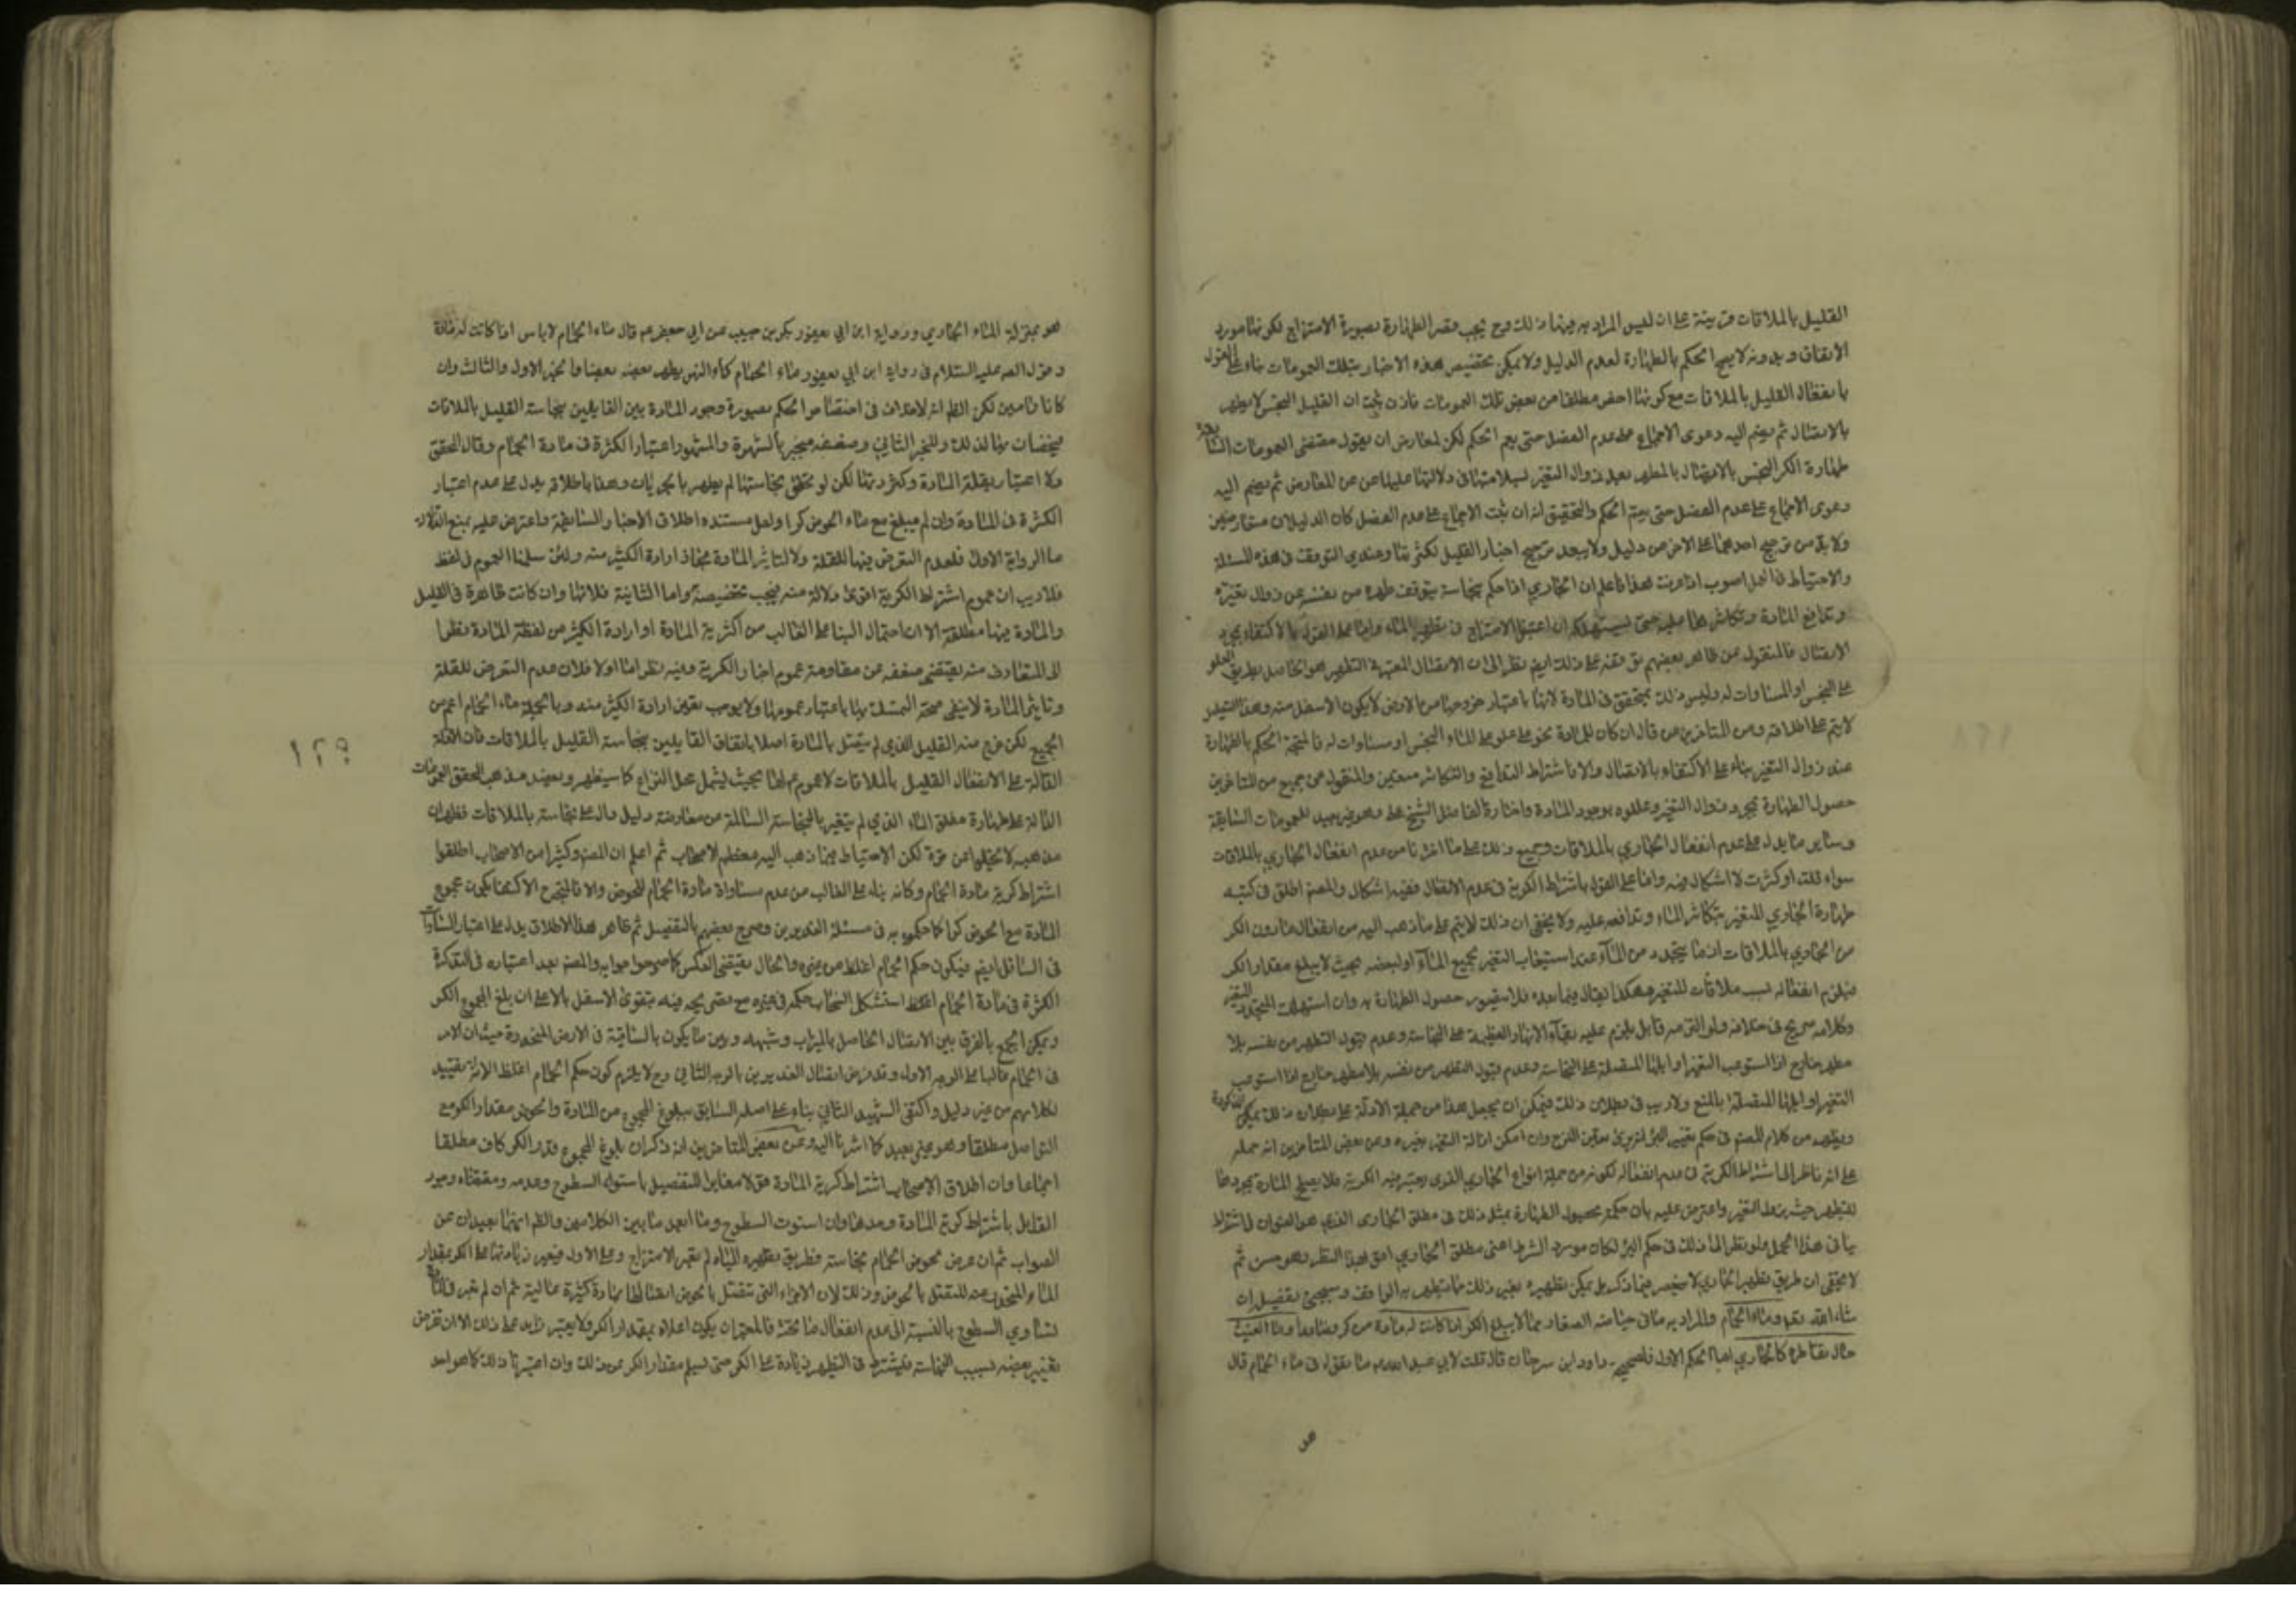 القليل بالملاقات قرينة على ان ليس المراد به فيها ذلك وح يجب قصر الطهارة بصورة الامتزاج لكونها مورد
الاتفاق وبدونه لا يصح الحكم بالطهارة لعدم الدليل ولا يمكن تخصيص هذه الاخبار بتلك العمومات بناء على القول
بانفعال القليل بالملاقات مع كونها اخص مطلقا من بعض تلك العمومات فاذن ثبت ان القليل النجس لا يطهر
بالاتصال ثم يضم اليه دعوى الاجماع على عدم الفصل حتى يعم الحكم لكن لمعارض ان يقول مقتضى العمومات السابقة
طهارة الكر النجس بالاتصال بالمطهر بعد زوال التغير لسلامتها في دلالتها عليها عن المعارض ثم يضم اليه
دعوى الاجماع على عدم الفصل حتى يعم الحكم والتحقيق انه ان ثبت الاجماع على عدم الفصل كان الدليلان متعارضين
ولا بد من ترجيح احدهما على الاخر من دليل ولا يبعد ترجيح اخبار القليل لكثرتها وعندي التوقف في هذه المسئلة
والاحتياط في العمل اصوب اذا عرفت هذا فاعلم ان الجاري اذا حكم بنجاسته يتوقف طهره من نفسه عن زوال تغيره
وتدافع المادة وتكاثرها عليه حتى يستهلكه ان اعتبر الامتزاج في تطهير الماء واما على القول بالاكتفاء بمجرد
الاتصال فالمنقول عن ظاهر بعضهم توقفه على ذلك ايضا نظرا الى ان الاتصال المعتبر في التطهير هو الحاصل بطريق العلو
على النجس او المساوات له وليس ذلك بمتحقق في المادة لانها باعتبار خروجها من الارض لا يكون الا اسفل منه وهذا التعليل
لا يتم على اطلاقه ومن المتاخرين من قال ان كان للمادة نحو علو على الماء النجس او مساوات له فالمتجه الحكم بالطهارة
عند زوال التغير بناء على الاكتفاء بالاتصال والا فاشتراط التدافع والتكاثر متعين والمنقول عن جمع من المتاخرين
حصول الطهارة بمجرد زوال التغير وعللوه بوجود المادة واختاره الفاضل الشيخ على وهو جيد للعمومات السابقة
وساير ما يدل على عدم انفعال الجاري بالملاقات وجميع ذلك على ما اخترنا من عدم انفعال الجاري بالملاقات
سواء قلت او كثرت لا اشكال فيه واما على القول باشتراط الكرية في عدم الانفعال ففيه اشكال والمصنف اطلق في كتبه
طهارة الجاري المتغير بتكاثر الماء وتدافعه عليه ولا يخفى ان ذلك لا يتم على ما ذهب اليه من انفعال ما دون الكر
من الجاري بالملاقات اذ ما يتجدد من الماء عند استيعاب التغير لجميع الماء او لبعضه بحيث لا يبلغ مقدار الكر
فيلزم انفعاله بسبب ملاقات المتغير وهكذا يقال فيما بعده فلا يتصور حصول الطهارة به وان استهلك المتجدد المتغير
وكلامه صريح في خلافه ولو التزمه قابل يلزم عليه بقاء الانهار العظيمة على النجاسة وعدم قبول التطهر من نفسه بلا
مطهر خارج اذا استوعب التغير اوايلها المتصلة على النجاسة وعدم قبول التطهر من نفسه بلا مطهر خارج اذا استوعب
التغير اوايلها المتصلة بالمنبع ولا ريب في بطلان ذلك فيمكن ان يجعل هذا من جملة الادلة على بطلان ذلك يمكن
ويفهم من كلام المصنف في حكم تغير البئر لزوم تعين النزح وان امكن ازالة التغير بغيره وعن بعض المتاخرين انه حمله
على انه ناظر الى اشتراط الكرية في عدم انفعاله لكونه من جملة انواع الجاري الذي يعتبر فيه الكرية فلا يصلح المادة بمجردها
للتطهير حيث يزيل التغير واعترض عليه بان حكمه بحصول الطهارة بمثل ذلك في مطلق الجاري الذي هو العنوان في اشتراط
ينافي هذا الحمل ولو نظر الى ذلك في حكم البئر لكان مورد الشرط اعني مطلق الجاري احق بهذا النظر وهو حسن ثم
لا يخفى ان طريق تطهير الجاري لا ينحصر فيما ذكر بل يمكن تطهيره بغير ذلك مما يطهر به الواقف وسيجئ تفصيل ان
شاء الله تعالى وماء الحمام والمراد به ما في حياضه الصغار مما لا يبلغ الكر اذا كانت له مادة من كر فصاعدا وماء الغيث
حال تقاطره كالجاري اما الحكم الاول فلصحيحه داود ابن سرحان قال قلت لابي عبد الله ع ما تقول في ماء الحمام قال
هو
هو بمنزلة الماء الجاري ورواية ابن ابي يعفور بكر بن حبيب عن ابي جعفر ع قال ماء الحمام لا باس اذا كانت له مادة
وقول الصادق عليه السلام في رواية ابن ابي يعفور ماء الحمام كماء النهر يطهر بعضه بعضا والخبر الاول والثالث وان
كانا عامين لكن الظ انه لا خلاف في اختصاص الحكم بصورة وجود المادة بين القايلين بنجاسة القليل بالملاقات
فيخصصان بها لذلك وللخبر الثاني وضعفه منجبر بالشهرة والمشهور اعتبار الكثرة في مادة الحمام وقال المحقق
ولا اعتبار بقلة المادة وكثرتها لكن لو تحقق نجاستها لم يطهر بالجريان وهذا باطلاقه يدل على عدم اعتبار
الكثرة في المادة وان لم يبلغ مع ماء الحوض كرا ولعل مستنده اطلاق الاخبار السابقة واعترض عليه بمنع الدلالة
اما الرواية الاولى فلعدم التعرض فيها للقلة ولا لتاثير المادة فجاز ارادة الكثير منه ولئن سلمنا العموم في لفظ
فلا ريب ان عموم اشتراط الكرية اقوى دلالة منه فيجب تخصيصه واما الثانية فلانها وان كانت ظاهرة في القليل
والمادة فيها مطلقة الا ان احتمال البناء على الغالب من اكثرية المادة او ارادة الكثير من لفظة المادة نظرا
الى المتعارف منه يقتضي ضعفه عن مقاومة عموم اخبار الكرية وفيه نظر اما اولا فلان عدم التعرض للقلة
وتاثير المادة لا ينفي صحة التمسك بها باعتبار عمومها ولا يوجب تعين ارادة الكثير منه وبالجملة ماء الحمام اعم من
الجميع لكن خرج منه القليل الذي لم يتصل بالمادة اصلا باتفاق القايلين بنجاسة القليل بالملاقات فان الادلة
الدالة على الانفعال القليل بالملاقات لا عموم لها بحيث يشمل محل النزاع كما سيظهر ويعضد مذهب المحقق العمومات
الدالة على طهارة مطلق الماء الذي لم يتغير بالنجاسة السالمة عن معارضة دليل دال على نجاسته بالملاقات فظهر ان
مذهبه لا يخلو عن قوة لكن الاحتياط فيما ذهب اليه معظم الاصحاب ثم اعلم ان المصنف وكثيرا من الاصحاب اطلقوا
اشتراط كرية مادة الحمام وكانه بناء على الغالب من عدم مساواة مادة الحمام للحوض والا فالمتجه ح الاكتفاء بكون مجموع
المادة مع الحوض كرا كما حكموا به في مسئلة الغديرين وصرح بعضهم بالتفصيل ثم ظاهر هذا الاطلاق يدل على اعتبار المساوات
في السافل ايضا فيكون حكم الحمام اغلظ من غيره والحال يقتضي العكس كما صرحوا به والمصنف بعد اعتباره في التذكرة
الكثرة في مادة الحمام اغلظ استشكل انسحاب حكمه في غيره مع تصريحه فيه بتقوى الاسفل بالاعلى ان بلغ المجموع الكر
ويمكن الجمع بالفرق بين الاتصال الحاصل بالميزاب وشبهه وبين ما يكون بالساقية في الارض المنحدرة حيث ان الامر
في الحمام غالبا على الوجه الاول وقد فرض اتصال الغديرين بالوجه الثاني وح لا يلزم كون حكم الحمام اغلظ الا انه تقييد
لكلامهم من غير دليل واكتفى الشهيد الثاني بناء على اصله السابق ببلوغ المجموع من المادة والحوض مقدار الكر مع
التواصل مطلقا وهو غير بعيد كما اشرنا اليه وعن بعض المتاخرين انه ذكر ان بلوغ المجموع قدر الكر كاف مطلقا
اجماعا وان اطلاق الاصحاب اشتراط كرية المادة قول مغاير للتفصيل باستواء السطوح وعدمه ومقتضاه وجود
القايل باشتراط كرية المادة وحدها وان استوت السطوح وما ابعد ما بين الكلامين والظ انهما بعيدان عن
الصواب ثم ان عرض لحوض الحمام نجاسة فطريق تطهيره المياه لم يعتبر الامتزاج وعلى الاول فيعتبر زيادتها على الكر بمقدار
الماء المنحدر عنه المتصل بالحوض وذلك لان الاجزاء التي تتصل بالحوض اتصالها بمادة كثيرة عالية ثم ان لم نعتبر في المادة
تساوي السطوح بالنسبة الى عدم انفعال ما تحت فالمعتبر ان يكون اعلاه بمقدار الكر ولا يعتبر زايد على ذلك الا ان نفرض
تغيير بعضه بسبب النجاسة فيشترط في التطهير زيادة على الكر حتى يسلم مقدار الكر عن ذلك وان اعتبرنا ذلك كما هو احد
١٢٩